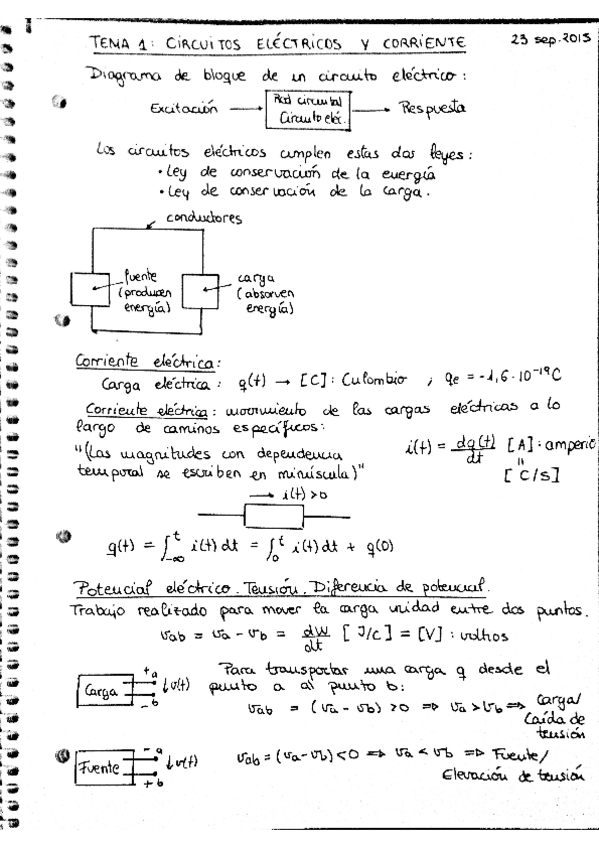 TEMA 1: CIRCUITOS ELÉCTRICOS Y CORRIENTE 23 sep. 2015
Diagrama de bloque de un circuito eléctrico:
Excitación → Red circuital Circuito eléc. → Respuesta
Los circuitos eléctricos cumplen estas dos leyes:
· Ley de conservación de la energía
· Ley de conservación de la carga.
conductores
fuente (producen energía)
carga (absorven energía)
Corriente eléctrica:
Carga eléctrica: q(t) → [C]: Culombio ; qe = -1,6·10⁻¹⁹C
Corriente eléctrica: movimiento de las cargas eléctricas a lo
largo de caminos específicos:
"(Las magnitudes con dependencia
temporal se escriben en minúscula)"
i(t) = dq(t)/dt [A]: amperio
"
[C/s]
→ i(t)>0
q(t) = ∫_{-∞}^{t} i(t) dt = ∫_{0}^{t} i(t) dt + q(0)
Potencial eléctrico. Tensión. Diferencia de potencial.
Trabajo realizado para mover la carga unidad entre dos puntos.
vab = va - vb = dW/dt [J/C] = [V]: voltios
Carga +a -b ↓v(t)
Para transportar una carga q desde el
punto a al punto b:
vab = (va - vb) >0 ⇒ va > vb ⇒ Carga/
Caída de
tensión
Fuente -a +b ↓v(t)
vab = (va-vb)<0 ⇒ va < vb ⇒ Fuente/
Elevación de tensión